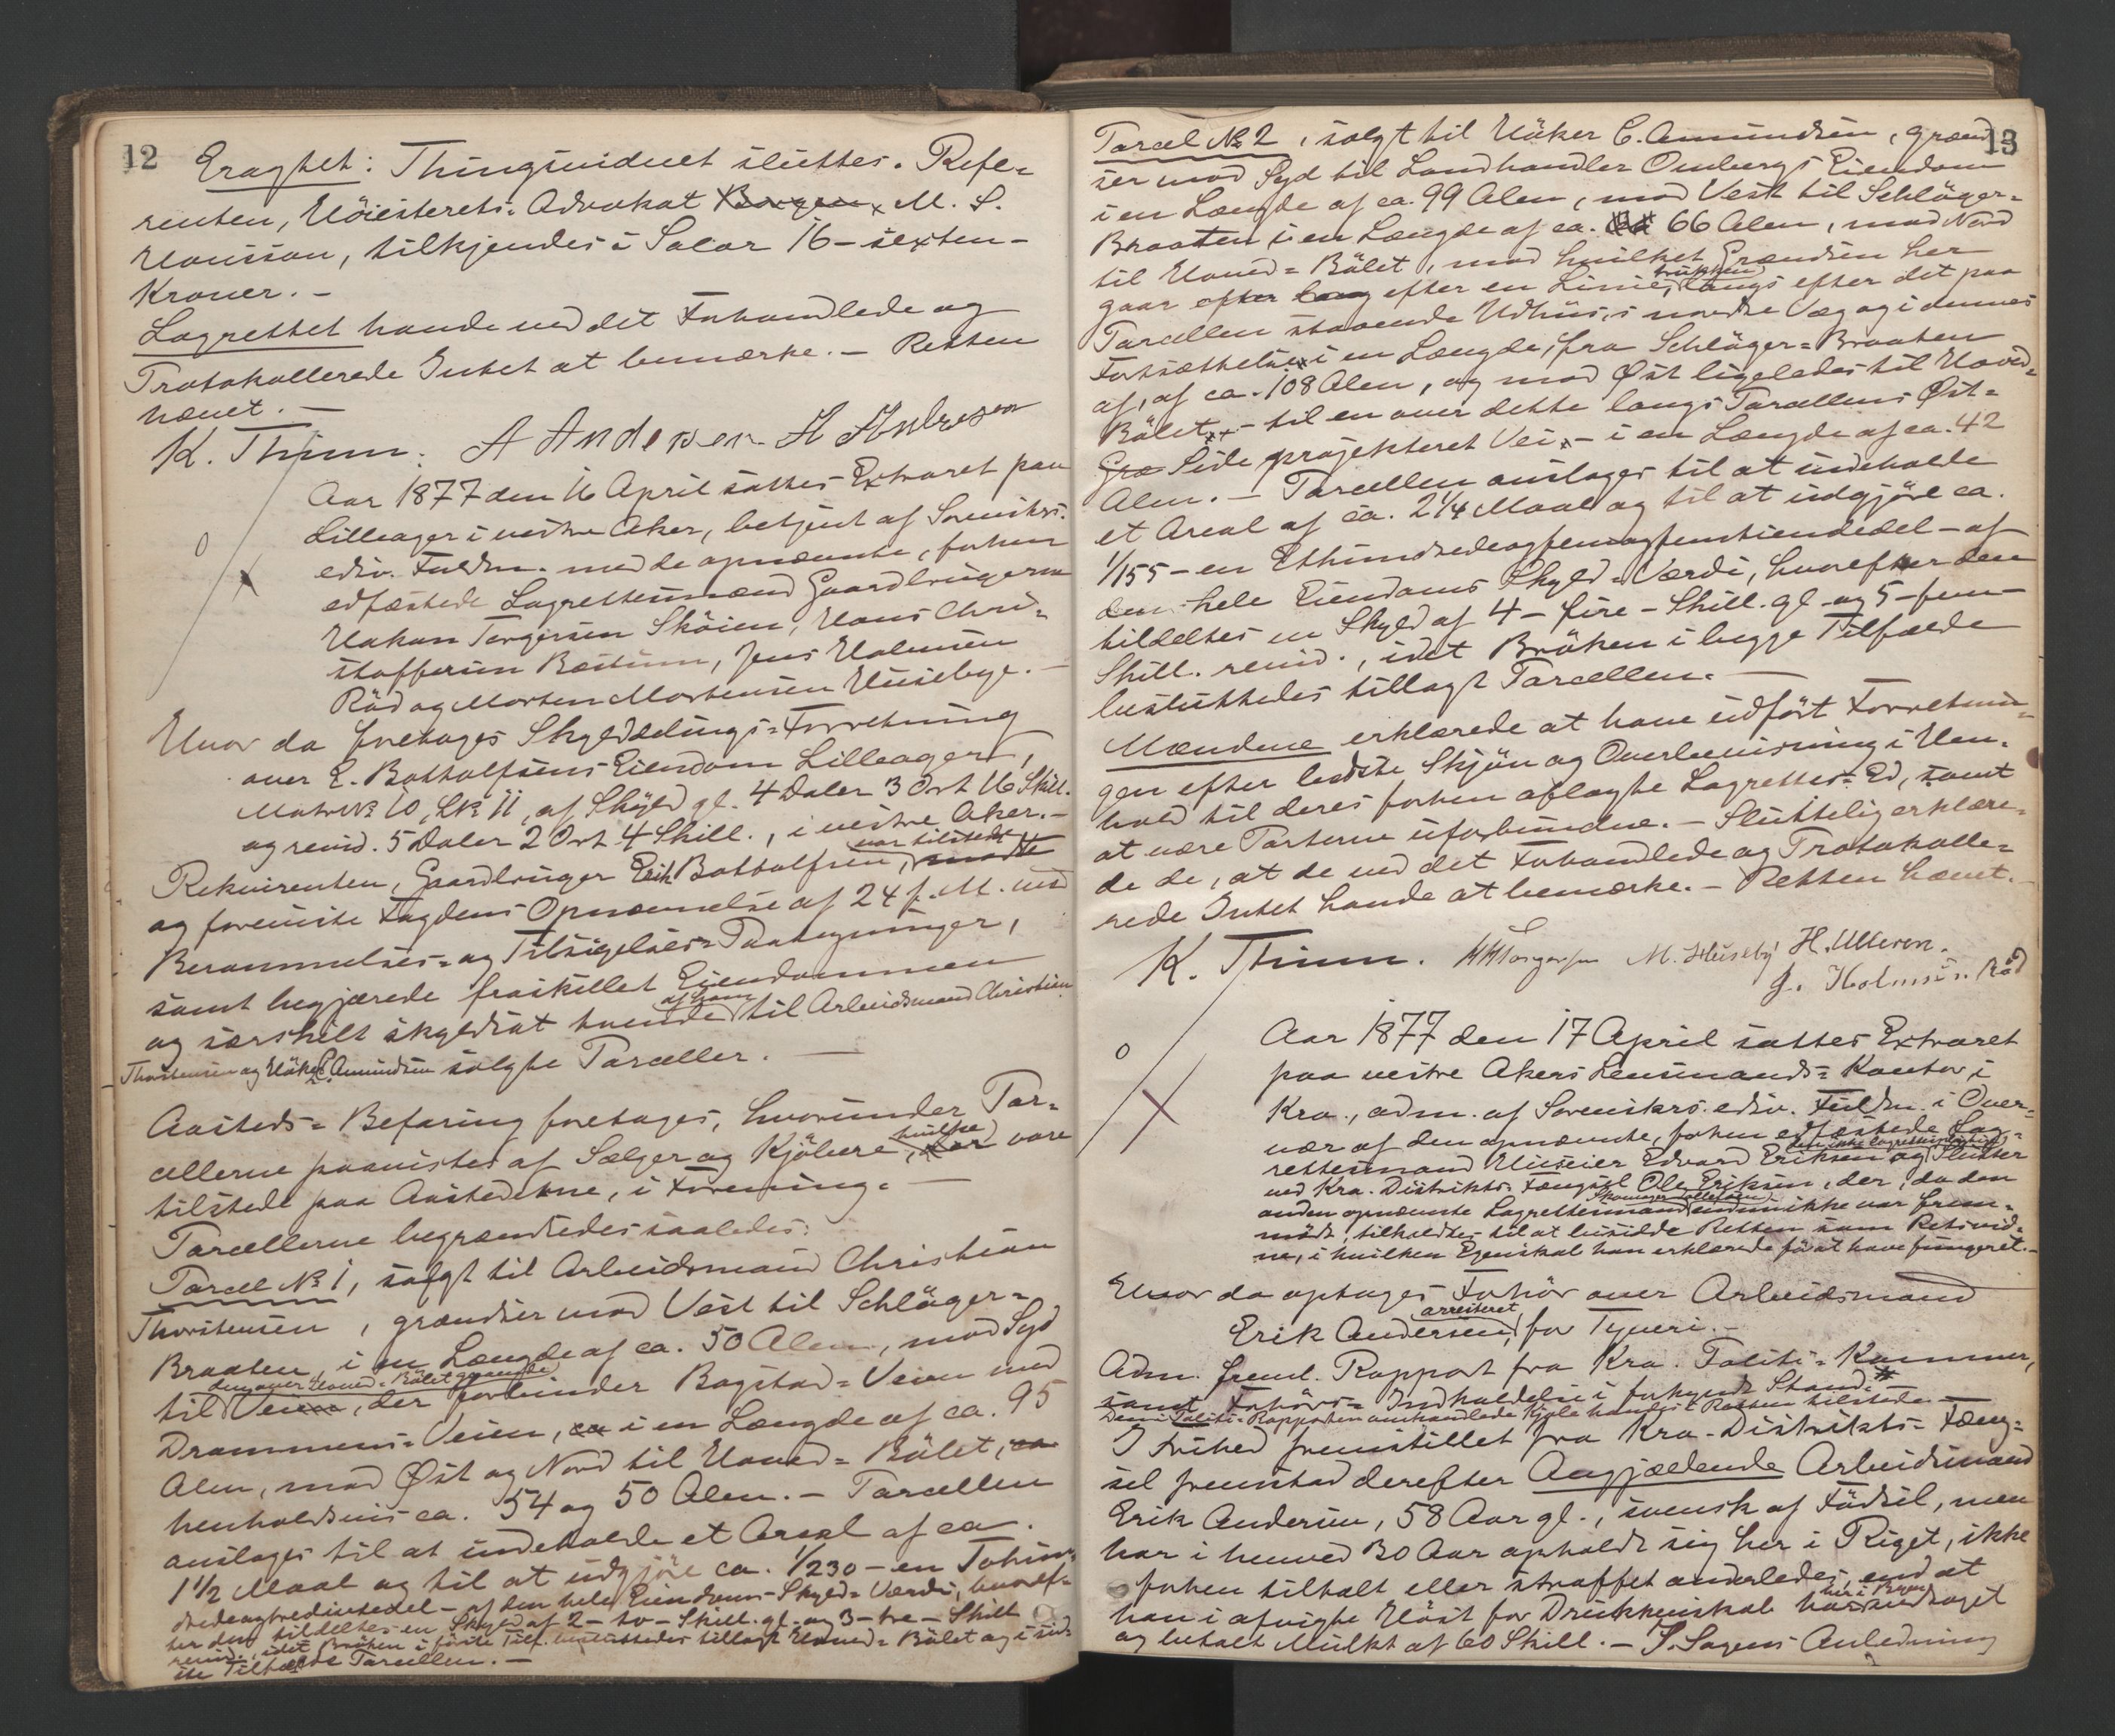 12
Eragtet: Thingsvidnet sluttes. Refe=
renten, Höiesterets=Advokat Borgen, M. S.
tilkjendes i Salær 16 – sexten –
Kroner. –
Lagrettet havde ved det Forhandlede og
Protokollerede Intet at bemærke. – Retten
hævet. –
K. Thinn. A Andersen H Andresen
Aar 1877 den 16 April sattes Extraret paa
Lilleager i vestre Aker, betjent af Sorenskrs.
edsv. Fuldm. med de opnævnte, forhen
edfæstede Lagrettesmænd Gaardbrugerne
Hakon Torgersen Sköien, Hans Chri=
stoffersen Bestum, Jens Halvorsen
Röd og Morten Mortensen Huseby. –
Hvor da foretoges Skylddelings=Forretning
over E. Bottolfsens Eiendom Lilleager,
Matr No 10, L No 11, af Skyld gl. 4 Daler 3 Ort 16 Skill.
og revid. 5 Daler 2 Ort 4 Skill., i vestre Aker. –
Rekvirenten, Gaardbruger Erik Bottolfsen, var tilstede
og foreviste Fogdens Opnævnelse af 24 f. M. med
Berammelses= og Tilsigelses=Paategninger,
samt begjærede fraskillet Eiendommen
og særskilt skyldsat tvende af ham til Arbeidsmand Christian
Thorstensen og Höker C. Amundsen solgte Parceller. –
Aasteds=Befaring foretoges, hvorunder Par=
cellerne paavistes af Sælger og Kjöbere, hvilke vare
tilstede paa Aastederne, i Forening. –
Parcellerne begrændsedes saaledes:
Parcel No 1, solgt til Arbeidsmand Christian
Thorstensen, grændser mod Vest til Schläger=
Braaten i en Længde af ca. 50 Alen, mod Syd
til den over Hoved=Bölet gaaende Vei, der forbinder Bogstad=Veien med
Drammens=Veien, i en Længde af ca. 95
Alen, mod Øst og Nord til Hoved=Bölet,
henholdsvis ca. 54 og 50 Alen. – Parcellen
anslages til at indeholde et Areal af ca.
1 1/2 Maal og til at udgjöre ca. 1/230 – en Tohun=
dredeogtredivtedel – af den hele Eiendoms Skyld=Værdi, hvoref=
ter den tildeltes en Skyld af 2 – to – Skill. gl. og 3 – tre – Skill
revid., idet Bröken i förste Tilf. besluttedes tillagt Hoved=Bölet og i sid=
ste Tilfælde Parcellen. –
13
Parcel No 2, solgt til Höker C. Amundsen, grænd
ser mod Syd til Landhandler Ombergs Eiendom
i en Længde af ca. 99 Alen, mod Vest til Schläger=
Braaten i en Længde af ca. 66 Alen, mod Nord
til Hoved=Bölet, mod hvilket Grændsen her
gaar efter lang efter en Linie, trukken langs efter det paa
Parcellen staaende Udhus's nordre Væg og i dennes
Fortsættelse i en Længde, fra Schläger=Braaten
af, af ca. 108 Alen, og mod Øst ligeledes til Hoved=
Bölet – til en over dette langs Parcellens Øst=
Græ Side projekteret Vei – i en Længde af ca. 42
Alen. – Parcellen anslages til at indeholde
et Areal af ca. 2 1/4 Maal og til at udgjöre ca.
1/155 – en Ethundredeogfemogfemtiendedel – af
den hele Eiendoms Skyld=Værdi, hvorefter den
tildeltes en Skyld af 4 – fire – Skill. gl. og 5 – fem –
Skill. revid., idet Bröken i begge Tilfælde
besluttedes tillagt Parcellen. –
Mændene erklærede at have udfört Forretnin=
gen efter bedste Skjön og Overbevisning i Hen=
hold til deres forhen aflagte Lagrettes=Ed, samt
at være Parterne uforbundne. – Sluttelig erklære=
de de, at de ved det Forhandlede og Protokolle=
rede Intet havde at bemærke. – Retten hævet. –
K. Thinn. H H Torgersen M. Huseby H. Ulleren.
J. Holmsen. Röd
Aar 1877 den 17 April sattes Extraret
paa vestre Akers Lensmands=Kontor i
Kra., adm. af Sorenskrs. edsv. Fuldm. i Over=
vær af den opnævnte, forhen edfæstede Lag=
rettesmand Huseier Edvard Eriksen og Slutter
ved Kra. Distrikts Fængsel Ole Eriksen, der, da den
anden opnævnte Lagrettesmand endnu ikke var frem=
mödt, tilholdtes til at beisidde Retten som Retsvid=
ne, i hvilken Egenskab han erklærede för at have fungeret. –
Hvor da optoges Forhör over Arbeidsmand
Erik Andersen, arresteret for Tyveri. –
Adm. freml. Rapport fra Kra. Politi=Kammer,
samt Forhörs=Indkaldelse i forkyndt Stand.
Den i Politi=Rapporten omhandlede Kjole havdes i Retten tilstede. –
I Frihed fremstillet fra Kra. Distrikts=Fæng=
sel fremstod derefter Angjældende Arbeidsmand
Erik Andersen, 58 Aar gl., svensk af Födsel, men
har i henved 30 Aar opholdt sig her i Riget, ikke
forhen tiltalt eller straffet anderledes, end at
han i afvigte Höst for Drukkenskab her i Byen har vedtaget
og betalt Mulkt af 60 Skill. – I Sagens Anledning